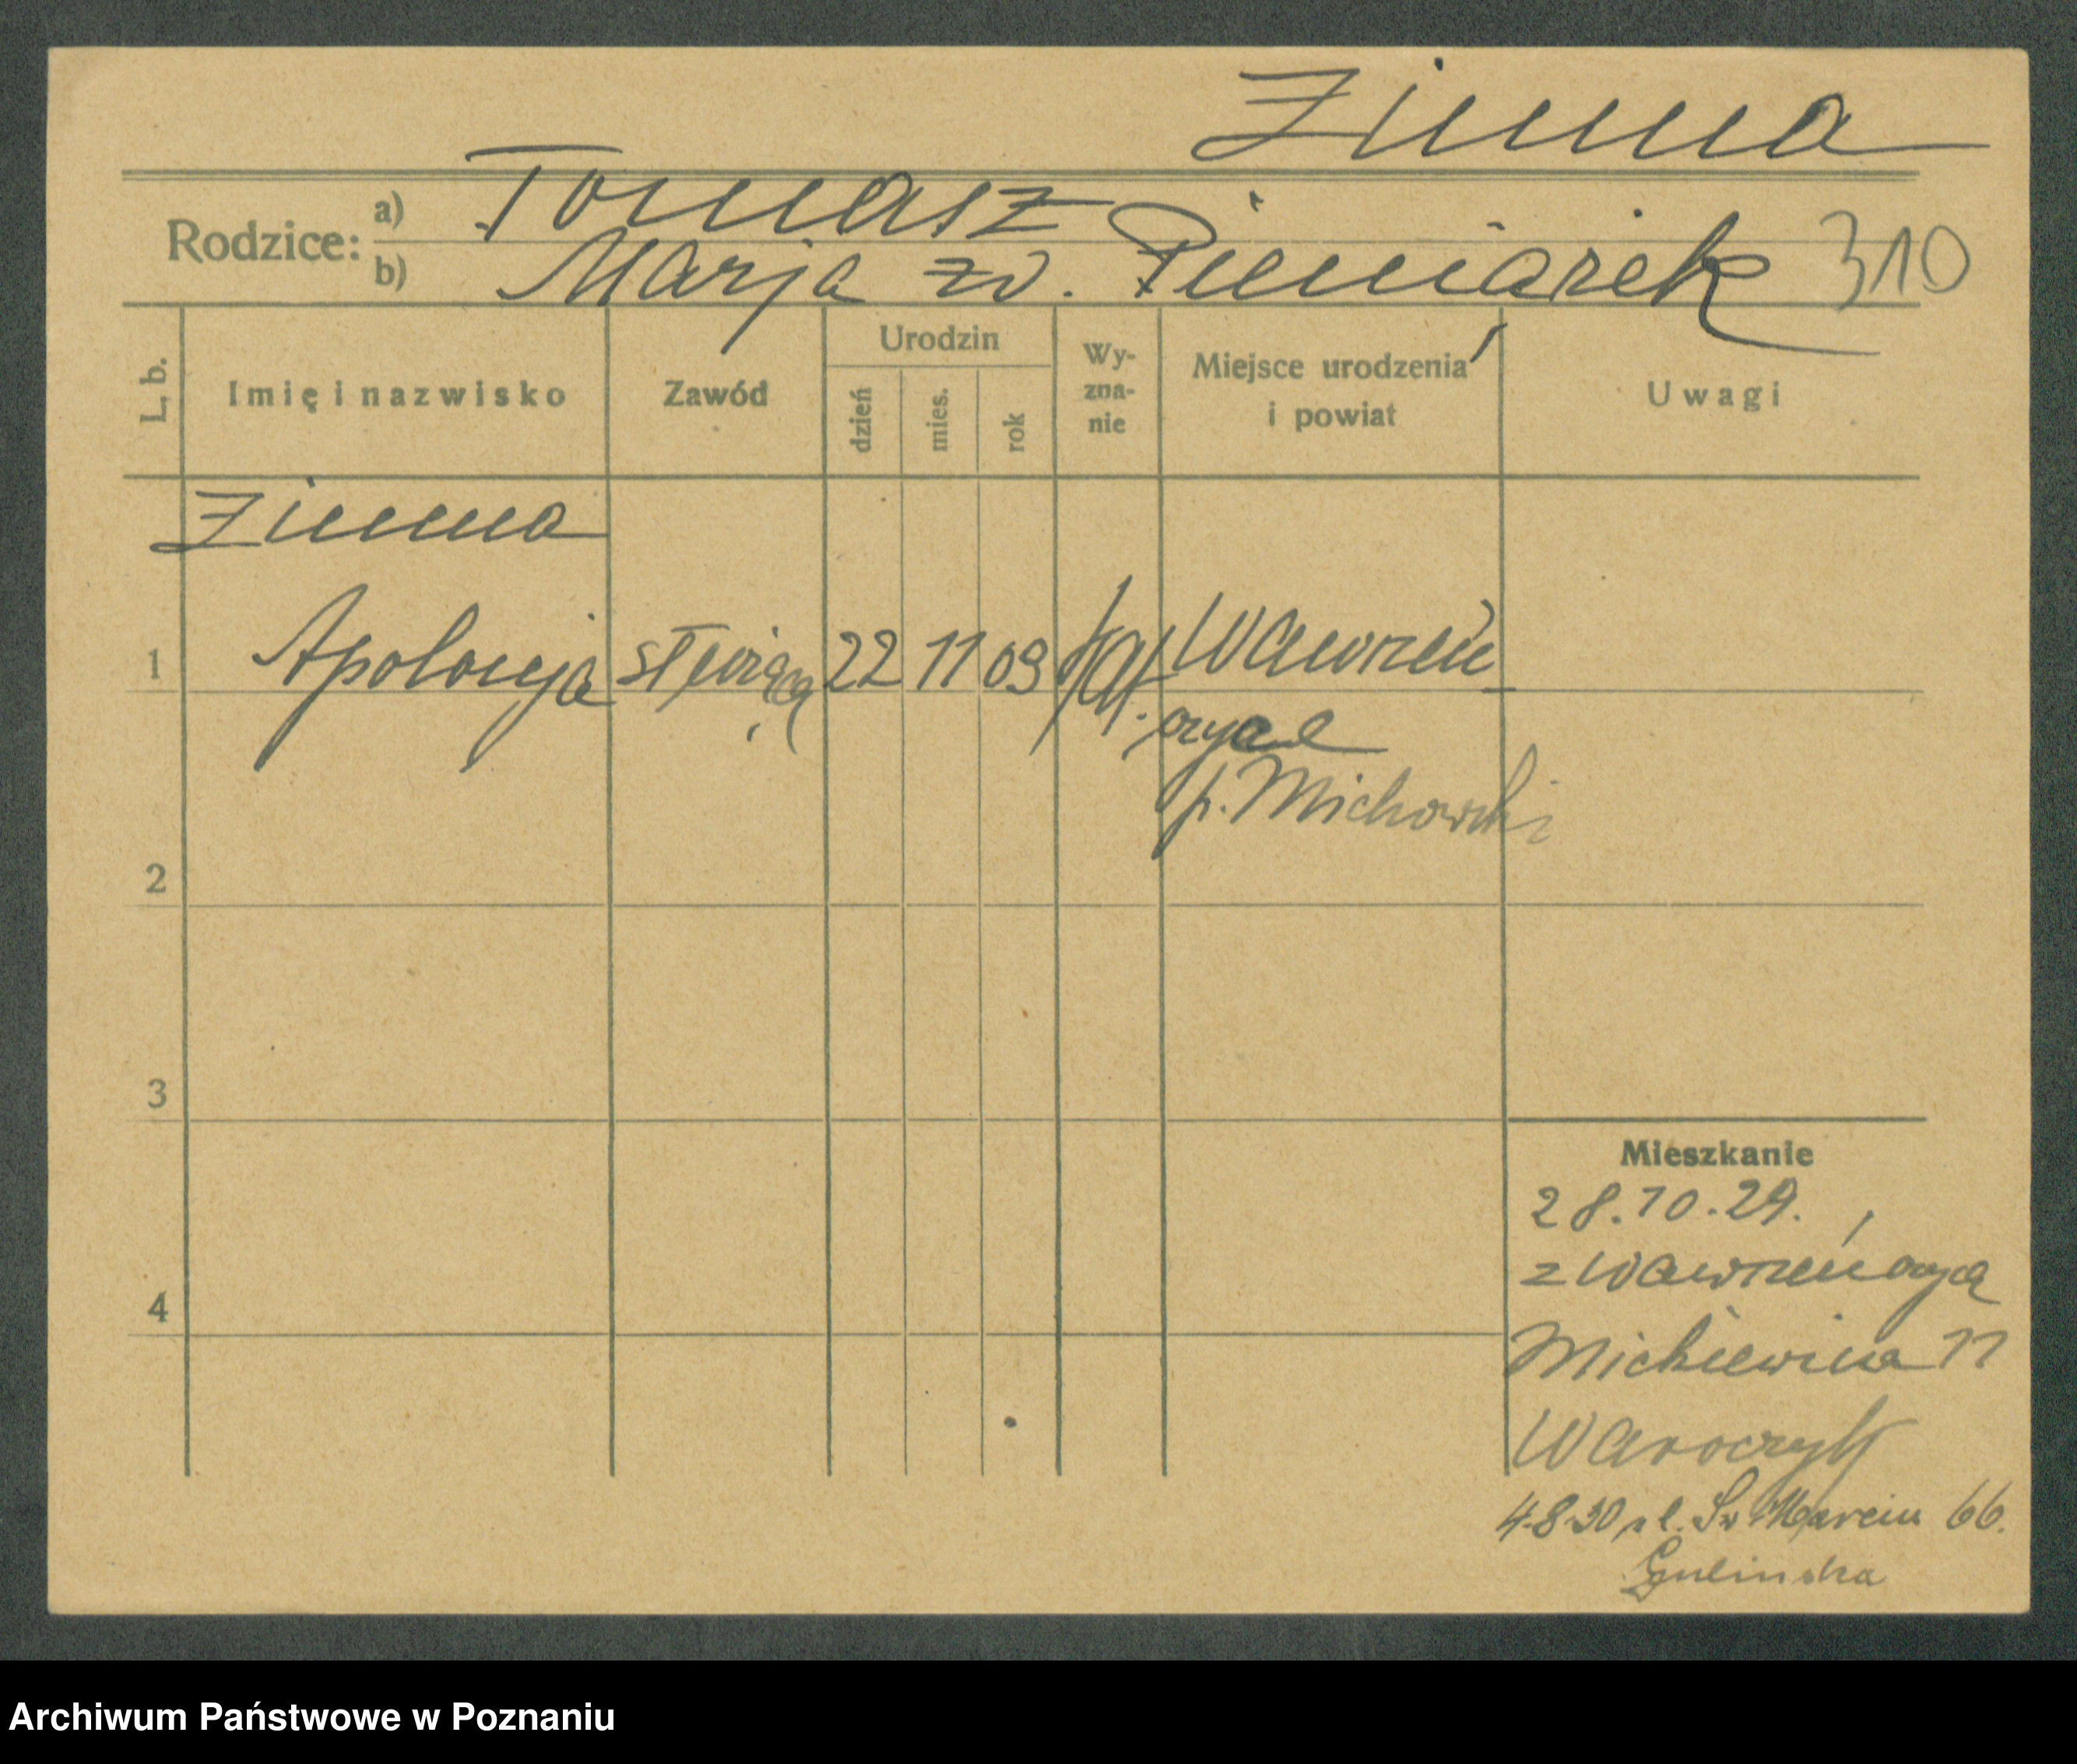 Zimna
Rodzice: a) Tomasz
b) Marja zd. Pieniarek 310
L. b. Imię i nazwisko Zawód Urodzin dzień mies. rok Wy-zna-nie Miejsce urodzenia i powiat Uwagi
Zimna
1 Apolonja służąca 22 11 09 kat. Wawrzeń
czyce
p. Michowski
2
3
Mieszkanie
28.10.29.
z Wawrzeńczyc
4
Mickiewicza 11
4.8.30 pl. Św Marcin 66.
Gulinska
Archiwum Państwowe w Poznaniu